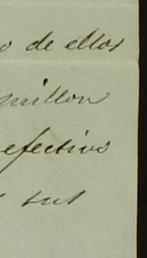 de ellos
millon
efectivo
sus